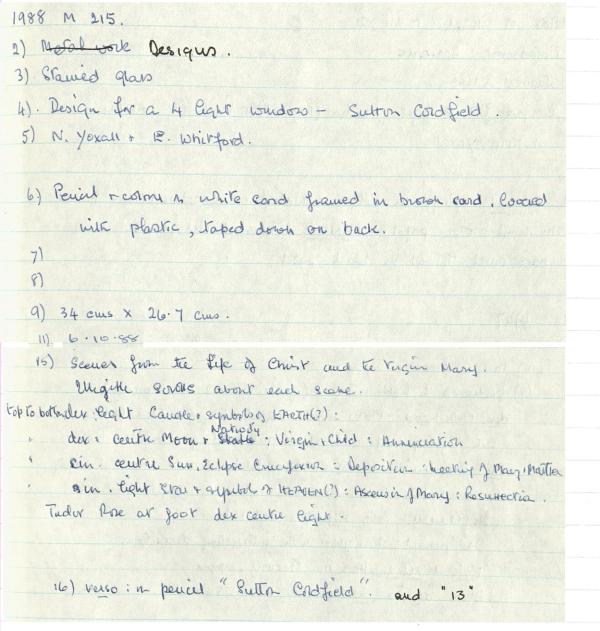 1988 M 215.
2) Metal work Designs.
3) Stained glass
4). Design for a 4 light window – Sutton Coldfield.
5) N. Yoxall + E. Whitford.
6) Pencil + colour on white card framed in brown card, covered
with plastic, taped down on back.
7)
8)
9) 34 cms x 26.7 cms.
11) 6.10.88
15) Scenes from the Life of Christ and the Virgin Mary.
scrolls about each scene.
top to bottom dex. light Candle + symbol of EARTH(?) :
" dex : centre Moon + Stable Nativity : Virgin + Child : Annunciation
" sin. centre Sun, Eclipse Crucifixion : Deposition : Meeting of Mary + Martha
" sin. light Star + symbol of HEAVEN(?) : Ascension of Mary : Resurrection.
Tudor Rose at foot dex centre light.
16) verso : in pencil "Sutton Coldfield". and "13"